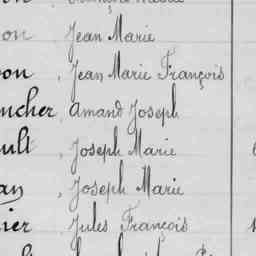 on Jean Marie
on, Jean Marie François
ncher, Amand Joseph
ult, Joseph Marie
an, Joseph Marie
ier, Jules François